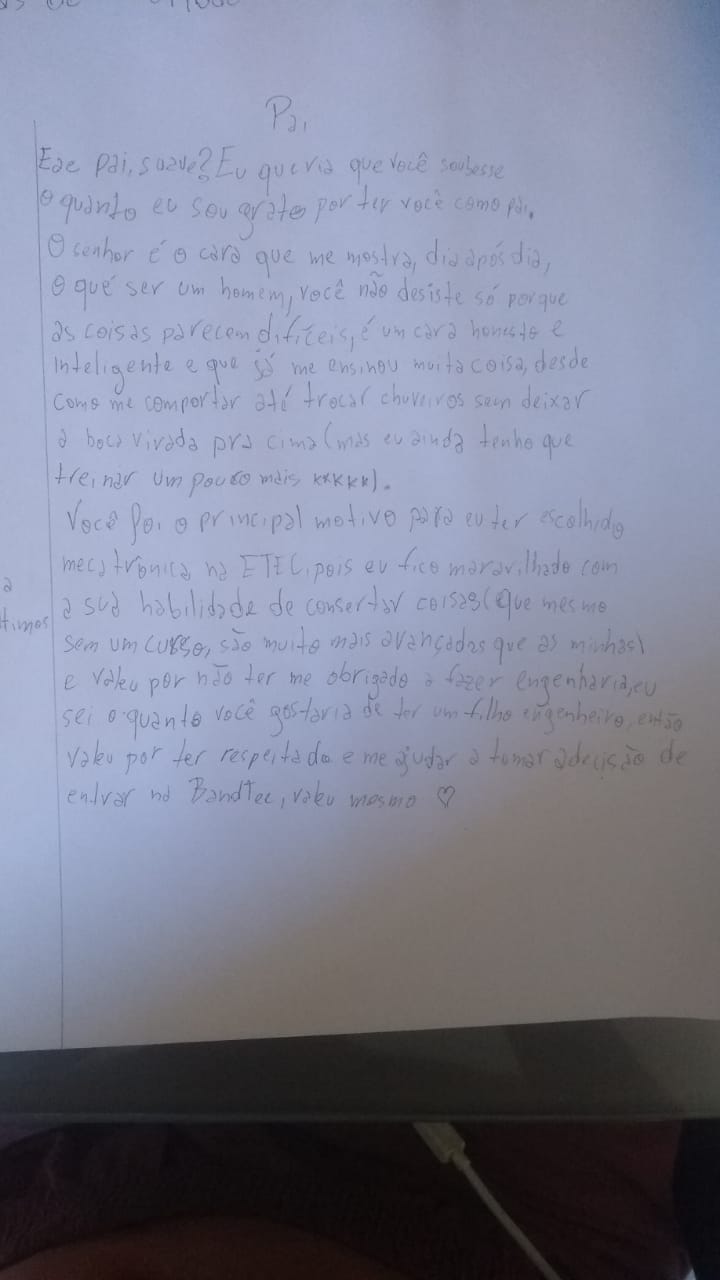 Pai
Eae pai, suave? Eu queria que você soubesse
o quanto eu sou grato por ter você como pai.
O senhor é o cara que me mostra, dia após dia,
o que é ser um homem, você não desiste só porque
as coisas parecem difíceis, é um cara honesto e
inteligente e que já me ensinou muita coisa, desde
como me comportar até trocar chuveiros sem deixar
a boca virada pra cima (mas eu ainda tenho que
treinar um pouco mais kkkkk).
Você foi o principal motivo para eu ter escolhido
mecatrônica na ETEC, pois eu fico maravilhado com
a sua habilidade de consertar coisas (que mesmo
sem um curso, são muito mais avançadas que as minhas)
e valeu por não ter me obrigado a fazer engenharia, eu
sei o quanto você gostaria de ter um filho engenheiro, então
valeu por ter respeitado e me ajudar a tomar a decisão de
entrar na Bandtec, valeu mesmo ♡
a
timos